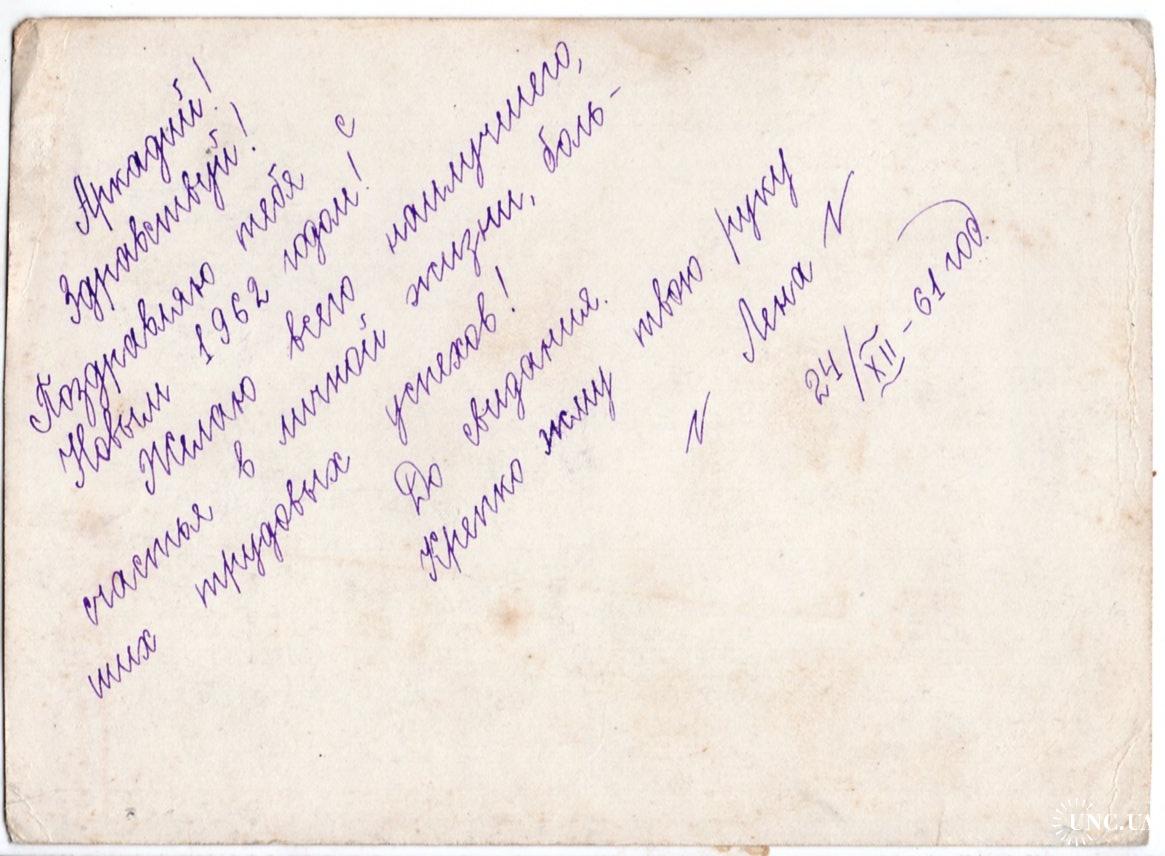 Аркадий!
Здравствуй!
Поздравляю тебя с
Новым 1962 годом!
Желаю всего наилучшего,
счастья в личной жизни, боль-
ших трудовых успехов!
До свидания.
Крепко жму твою руку
Лена
24/XII - 61 год.
UNC.UA